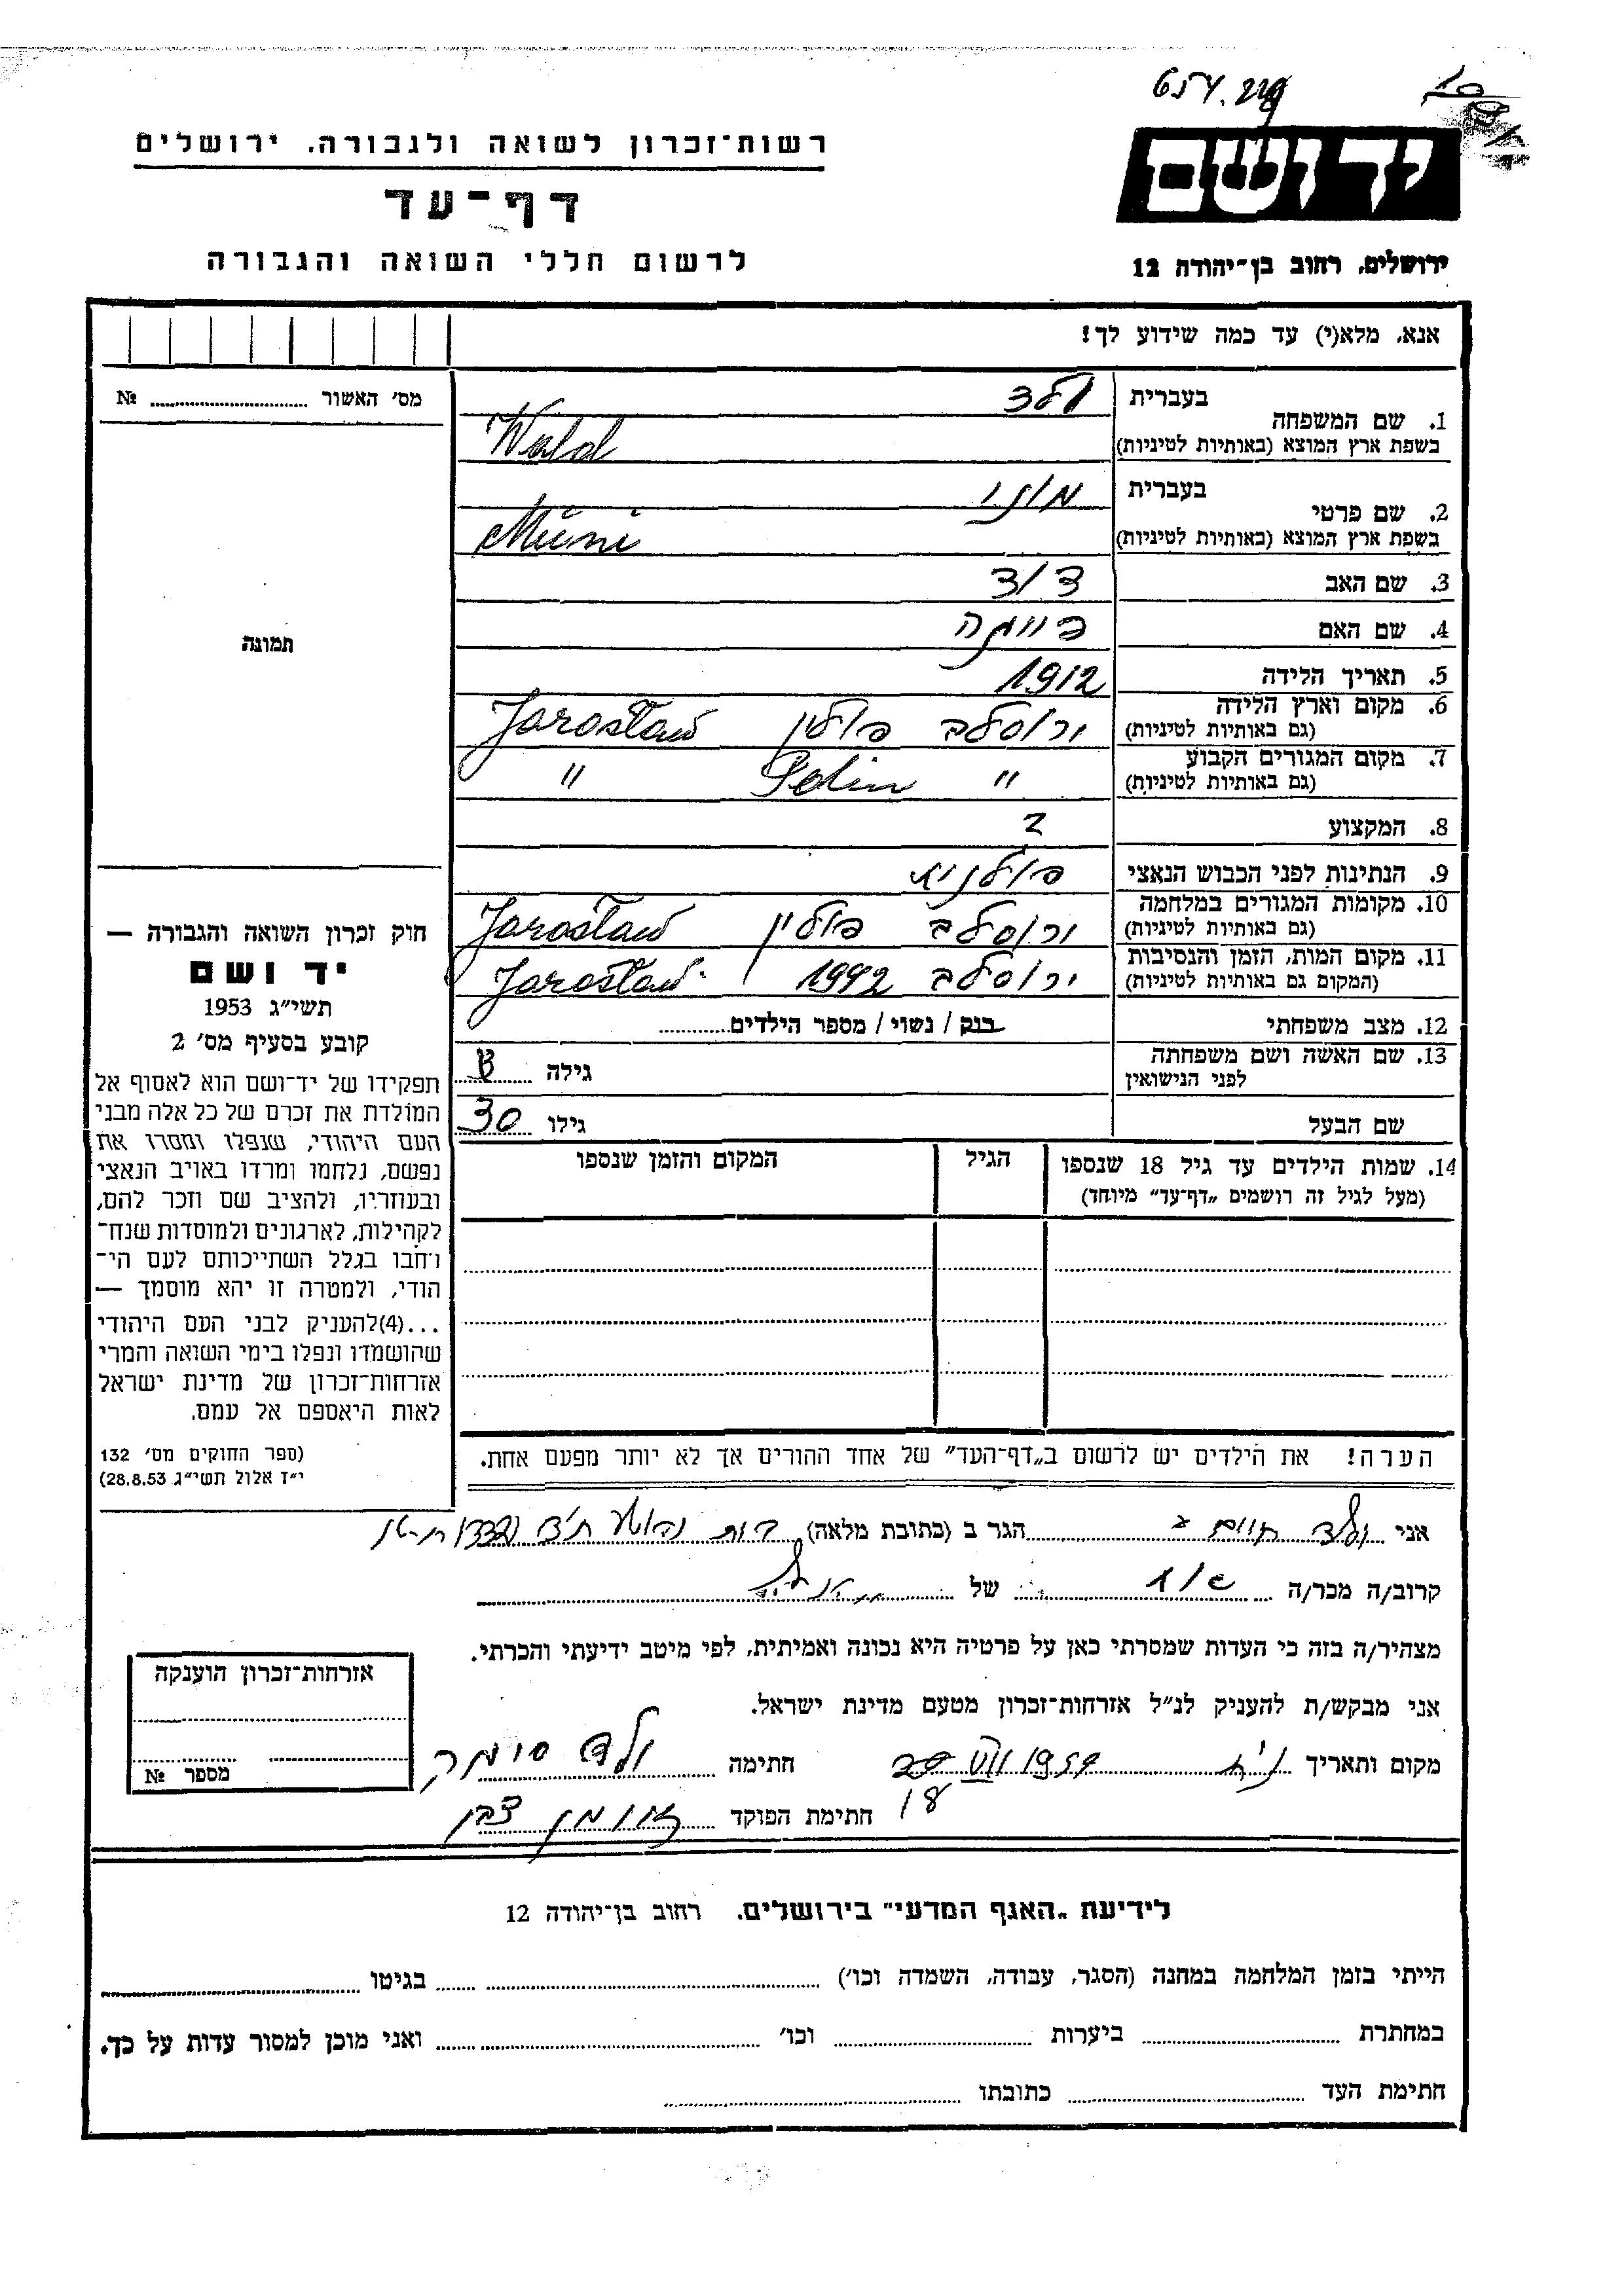 רשות־זכרון לשואה ולגבורה. ירושלים
דף־עד
לרשום חללי השואה והגבורה
יד ושם
ירושלים. רחוב בן־יהודה 12
אנא. מלא(י) עד כמה שידוע לך!
מס׳ האשור № 
תמונה
חוק זכרון השואה והגבורה —
יד ושם
תשי״ג 1953
קובע בסעיף מס׳ 2
תפקידו של יד־ושם הוא לאסוף אל
המולדת את זכרם של כל אלה מבני
העם היהודי, שנפלו ומסרו את
נפשם, נלחמו ומרדו באויב הנאצי
ובעוזריו, ולהציב שם וזכר להם,
לקהילות, לארגונים ולמוסדות שנח־
רחבו בגלל השתייכותם לעם הי־
הודי, ולמטרה זו יהא מוסמך —
...(4)להעניק לבני העם היהודי
שהושמדו ונפלו בימי השואה והמרי
אזרחות־זכרון של מדינת ישראל
לאות היאספם אל עמם.
(ספר החוקים מס׳ 132
י״ז אלול תשי״ג 28.8.53)
בעברית ולד
1. שם המשפחה
בשפת ארץ המוצא (באותיות לטיניות) Wald
בעברית מוני
2. שם פרטי
בשפת ארץ המוצא (באותיות לטיניות) Müni
3. שם האב דוד
4. שם האם
5. תאריך הלידה 1912
6. מקום וארץ הלידה ירוסלב פולין Jarosław
(גם באותיות לטיניות)
7. מקום המגורים הקבוע " Polin "
(גם באותיות לטיניות)
8. המקצוע
9. הנתינות לפני הכבוש הנאצי פולנית
10. מקומות המגורים במלחמה ירוסלב פולין Jarosław
(גם באותיות לטיניות)
11. מקום המות, הזמן והנסיבות ירוסלב 1942 Jarosław
(המקום גם באותיות לטיניות)
12. מצב משפחתי רוק / נשוי / מספר הילדים
13. שם האשה ושם משפחתה גילה
לפני הנישואין
שם הבעל גילו 30
14. שמות הילדים עד גיל 18 שנספו הגיל המקום והזמן שנספו
(מעל לגיל זה רושמים „דף־עד״ מיוחד)
הערה! את הילדים יש לרשום ב„דף־העד״ של אחד ההורים אך לא יותר מפעם אחת.
אני ולד חיים הגר ב (כתובת מלאה)
קרוב/ה מכר/ה של
מצהיר/ה בזה כי העדות שמסרתי כאן על פרטיה היא נכונה ואמיתית, לפי מיטב ידיעתי והכרתי.
אני מבקש/ת להעניק לנ״ל אזרחות־זכרון מטעם מדינת ישראל.
מקום ותאריך חתימה ולד
18 חתימת הפוקד
אזרחות־זכרון הוענקה
מספר №
לידיעת „האגף המדעי״ בירושלים. רחוב בן־יהודה 12
הייתי בזמן המלחמה במחנה (הסגר, עבודה, השמדה וכו׳) בגיטו
במחתרת ביערות וכו׳ ואני מוכן למסור עדות על כך.
חתימת העד כתובתו